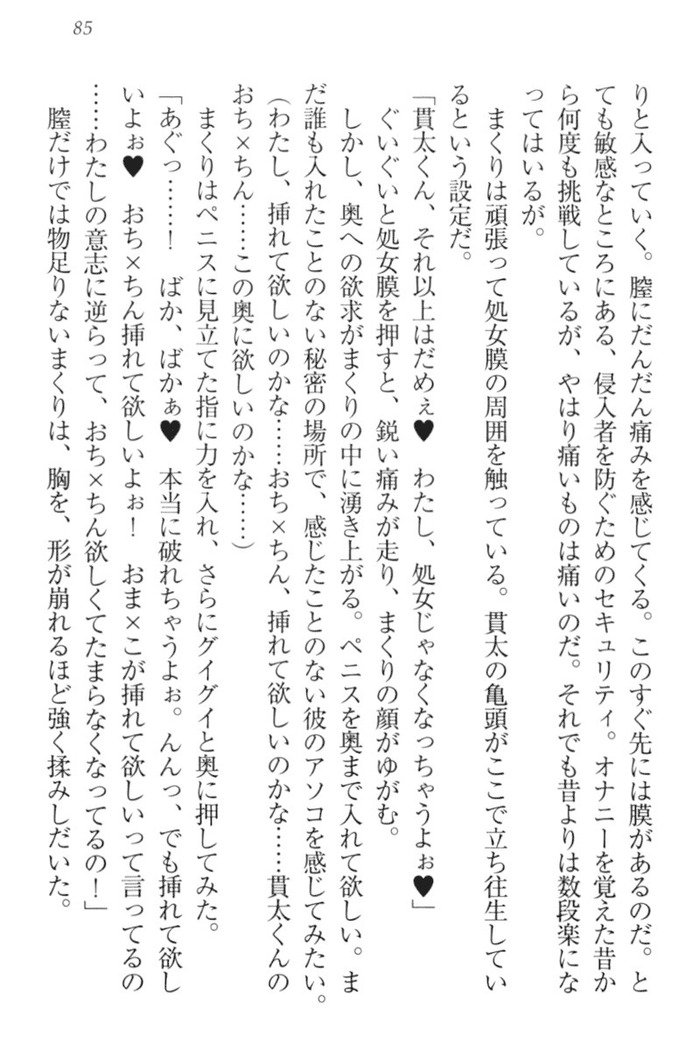 85
りと入っていく。膣にだんだん痛みを感じてくる。このすぐ先には膜があるのだ。と
ても敏感なところにある、侵入者を防ぐためのセキュリティ。オナニーを覚えた昔か
ら何度も挑戦しているが、やはり痛いものは痛いのだ。それでも昔よりは数段楽にな
ってはいるが。
　まくりは頑張って処女膜の周囲を触っている。貫太の亀頭がここで立ち往生してい
るという設定だ。
「貫太くん、それ以上はだめぇ♥　わたし、処女じゃなくなっちゃうよぉ♥」
　ぐいぐいと処女膜を押すと、鋭い痛みが走り、まくりの顔がゆがむ。
　しかし、奥への欲求がまくりの中に湧き上がる。ペニスを奥まで入れて欲しい。ま
だ誰も入れたことのない秘密の場所で、感じたことのない彼のアソコを感じてみたい。
（わたし、挿れて欲しいのかな……おち×ちん、挿れて欲しいのかな……貫太くんの
おち×ちん……この奥に欲しいのかな……）
　まくりはペニスに見立てた指に力を入れ、さらにグイグイと奥に押してみた。
「あぐっ……！　ばか、ばかぁ♥　本当に破れちゃうよぉ。んんっ、でも挿れて欲し
いよぉ♥　おち×ちん挿れて欲しいよぉ！　おま×こが挿れて欲しいって言ってるの
……わたしの意志に逆らって、おち×ちん欲しくてたまらなくなってるの！」
　膣だけでは物足りないまくりは、胸を、形が崩れるほど強く揉みしだいた。